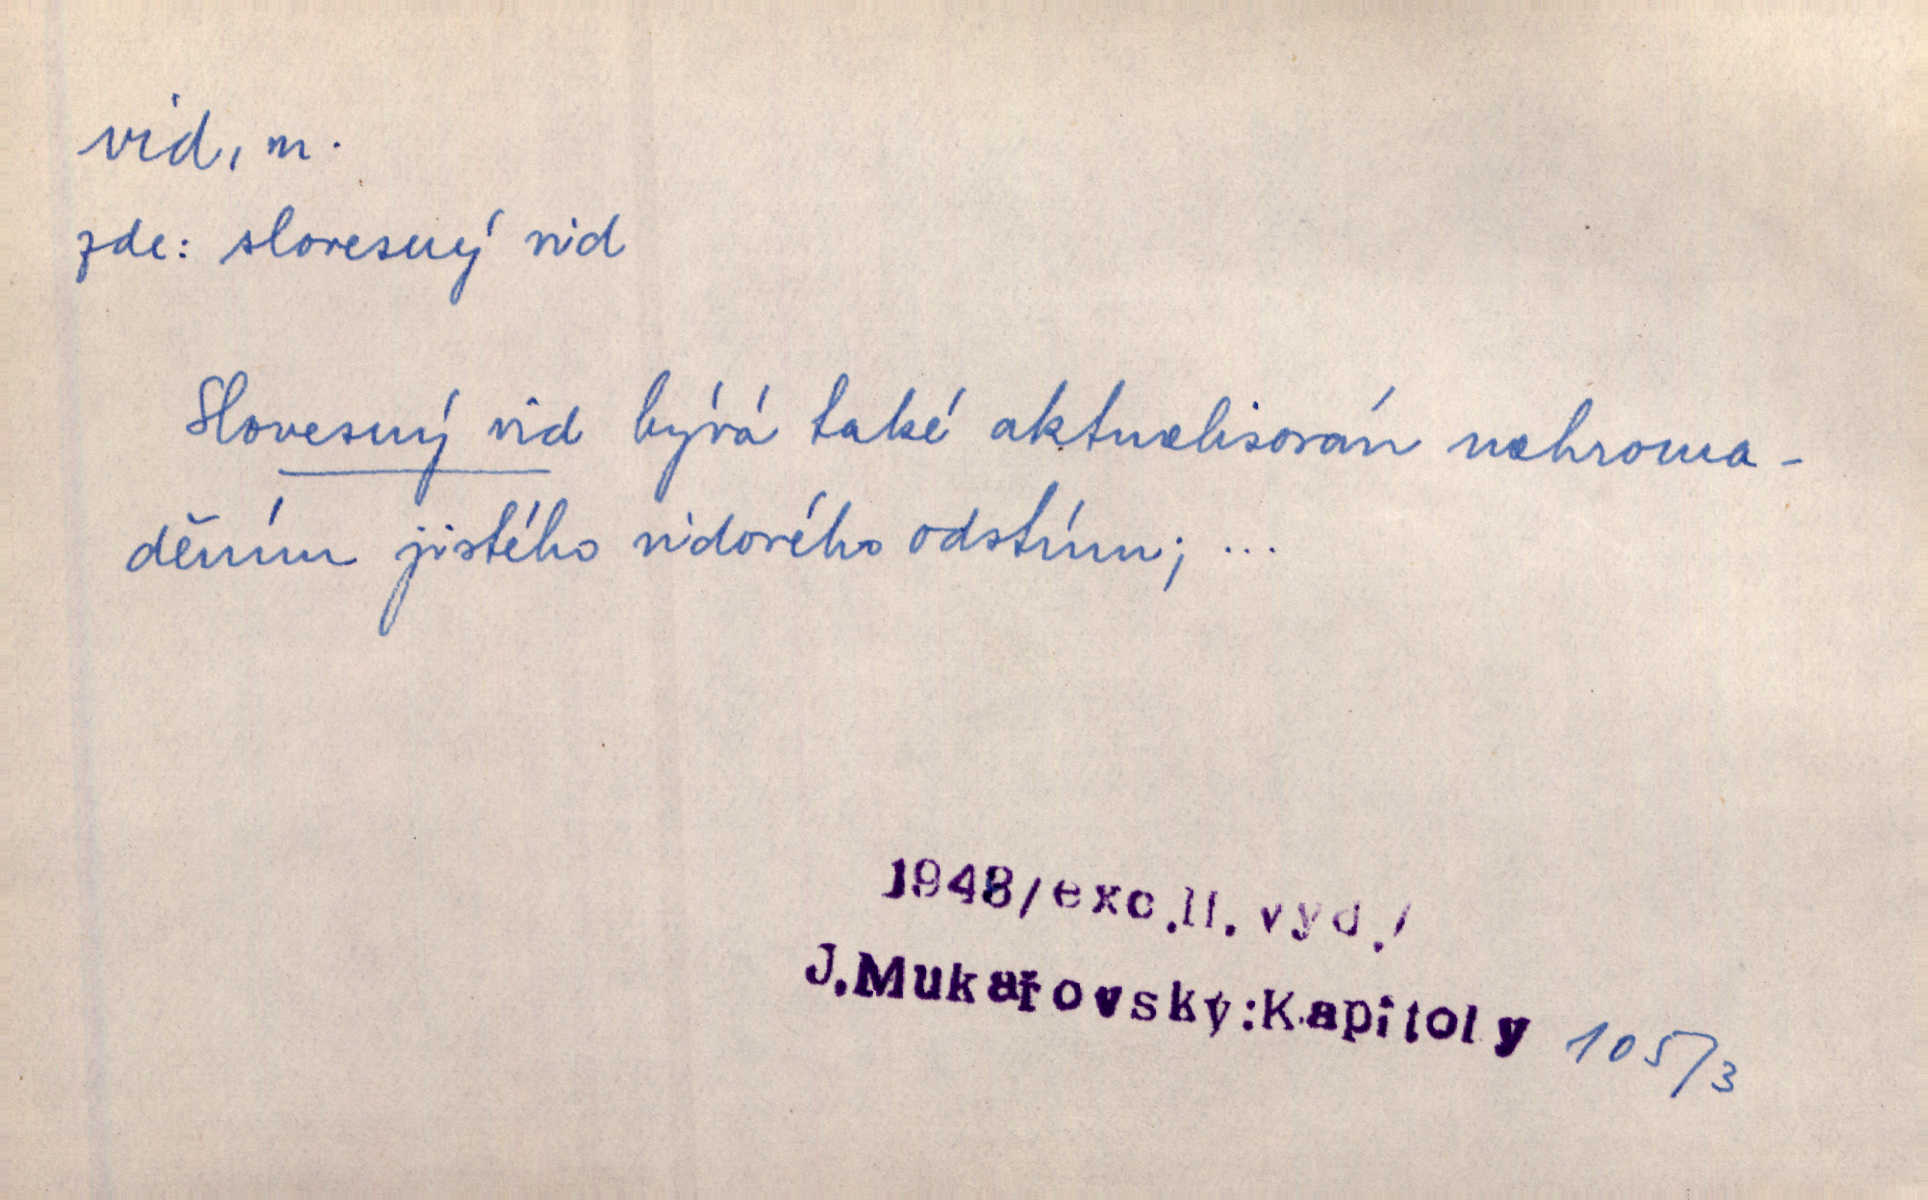 vid, m.
zde: slovesný vid
Slovesný vid bývá také aktualisován nahroma-
děním jistého vidového odstínu; ...
1948/exc.II.vyd./
J.Mukařovský:Kapitoly 105/3